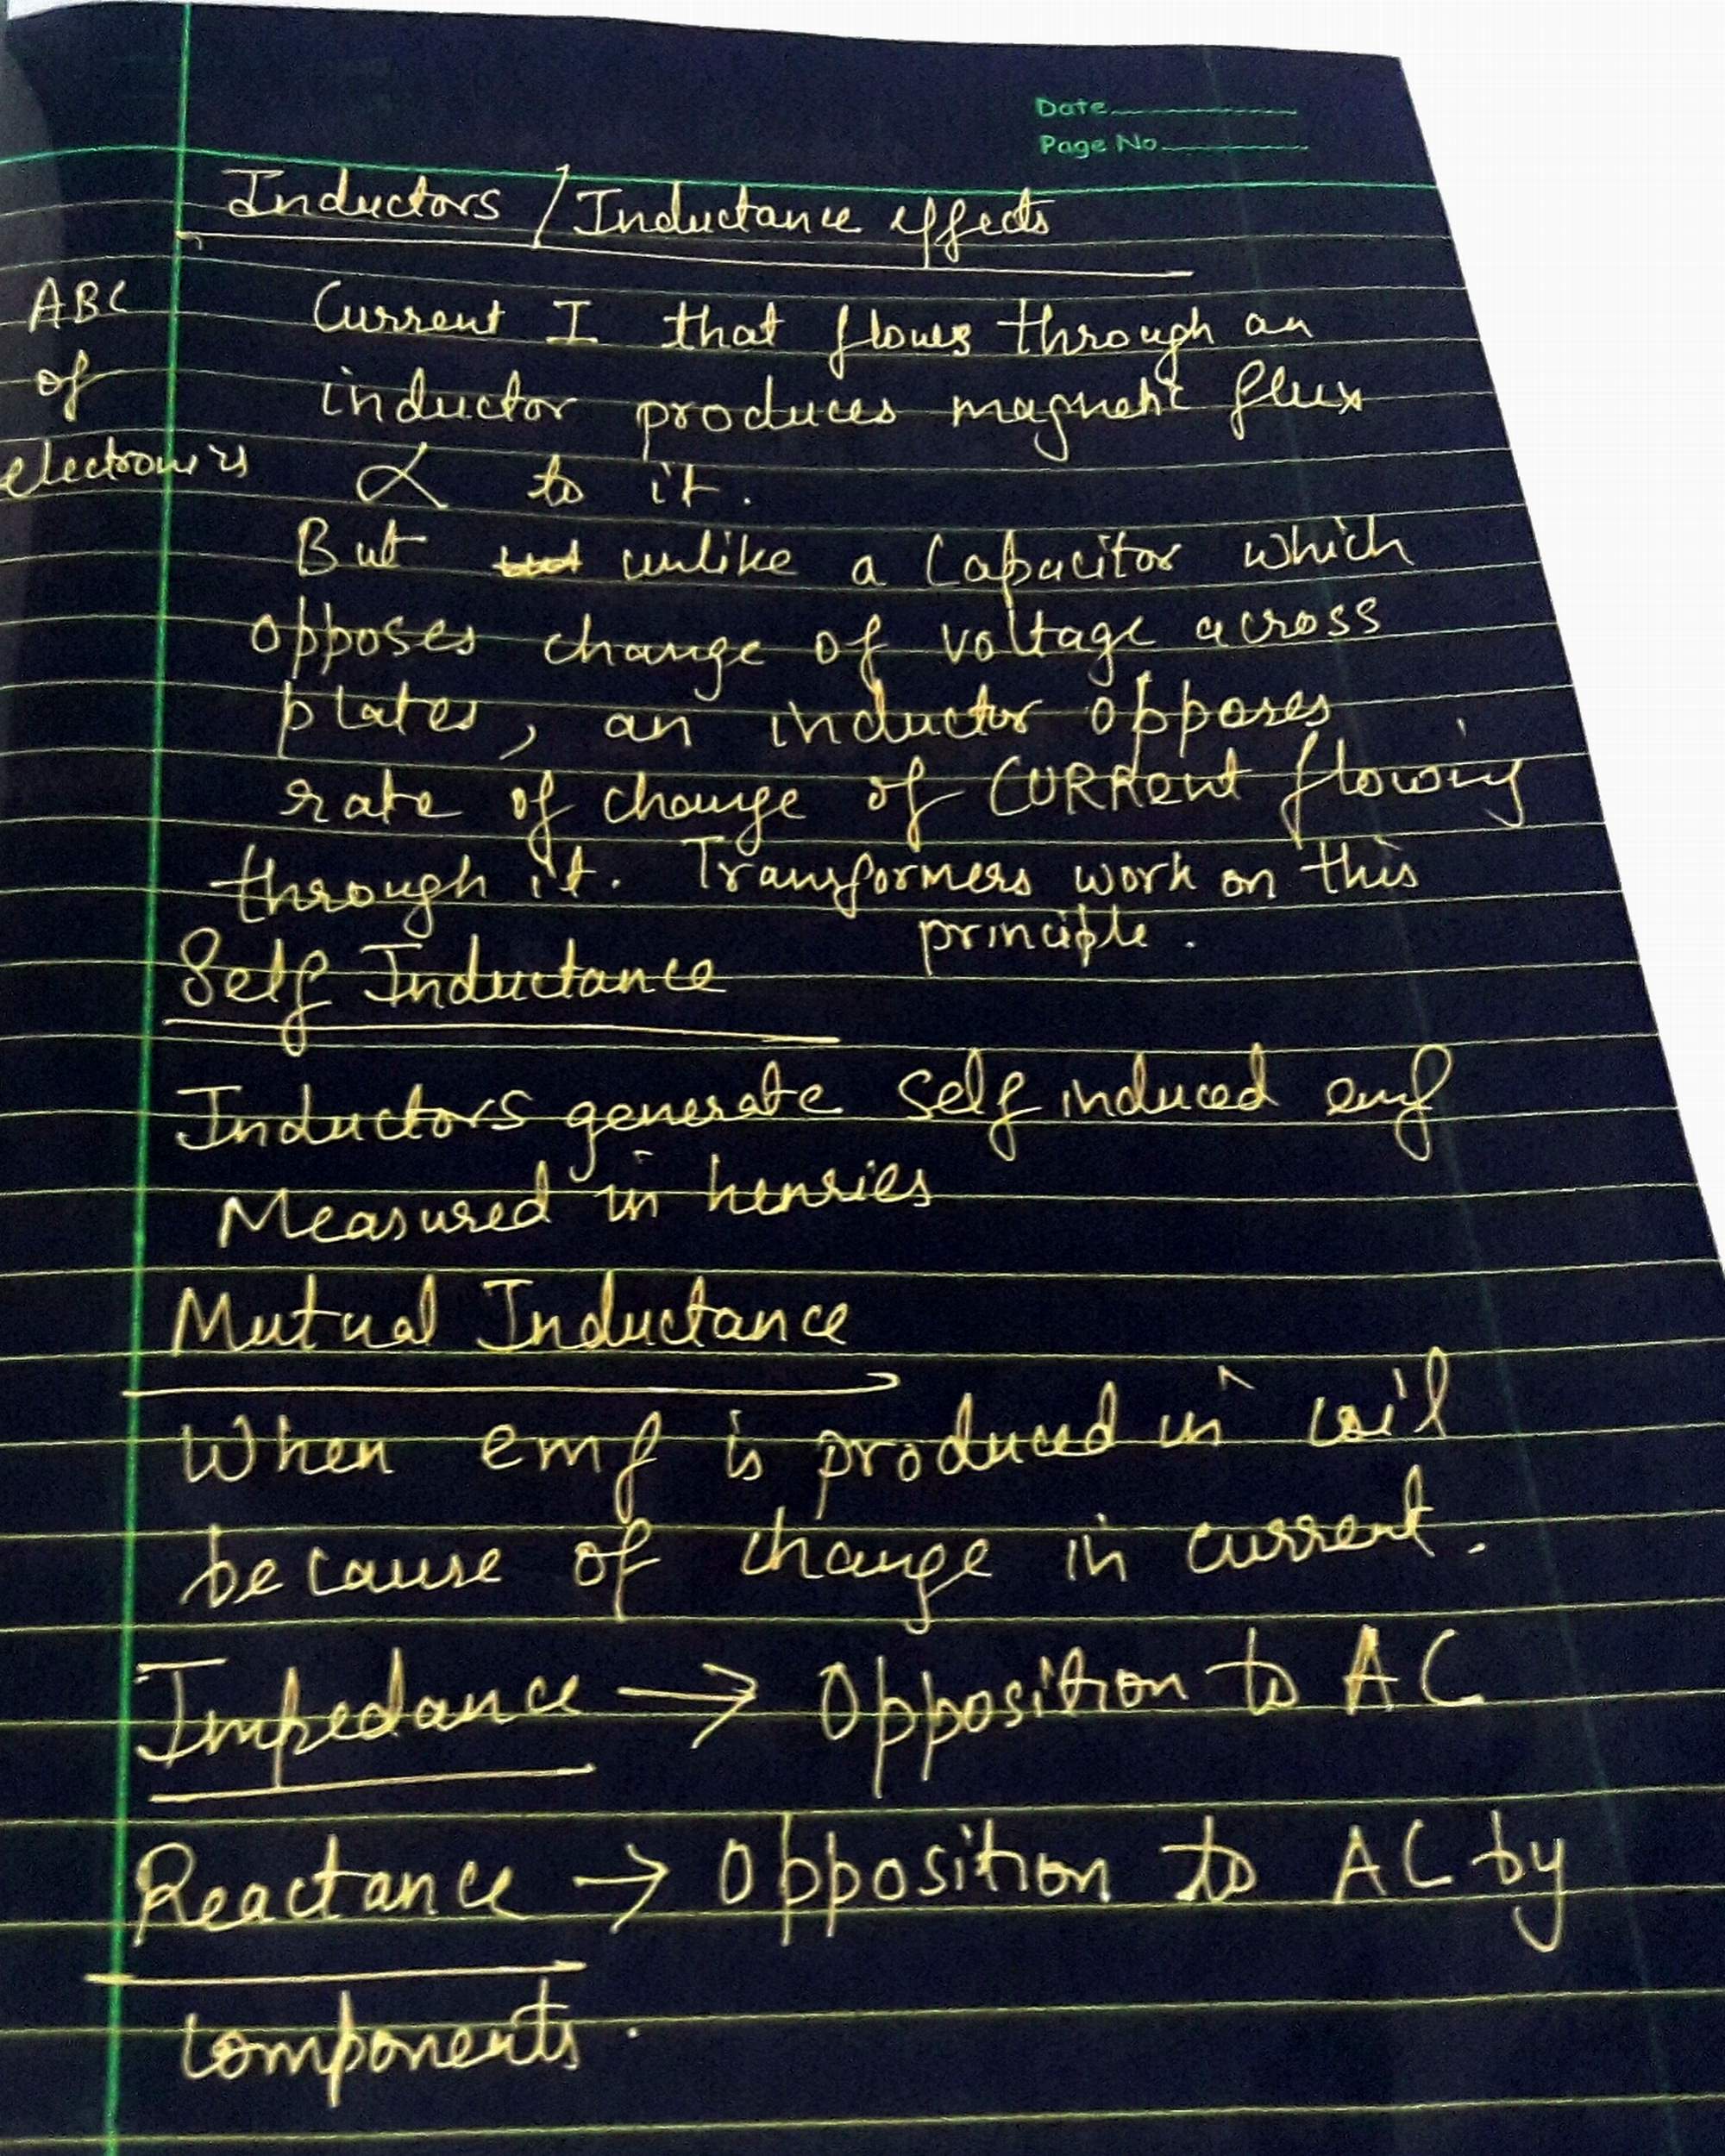 Date
Page No.
Inductors / Inductance effects
ABC
of
electronics
Current I that flows through an
inductor produces magnetic flux
∝ to it.
But unlike a Capacitor which
opposes change of voltage across
plates, an inductor opposes
rate of change of CURRent flowing
through it. Transformers work on this
principle.
Self Inductance
Inductors generate self induced emf
Measured in henries
Mutual Inductance
When emf is produced in coil
because of change in current.
Impedance → Opposition to AC
Reactance → Opposition to AC by
components.